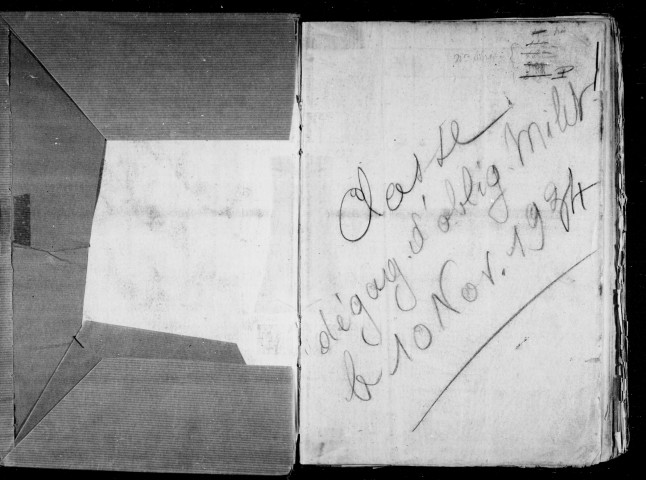 Classe
dégag. d'oblig. Milit.
le 10 Nov. 1934